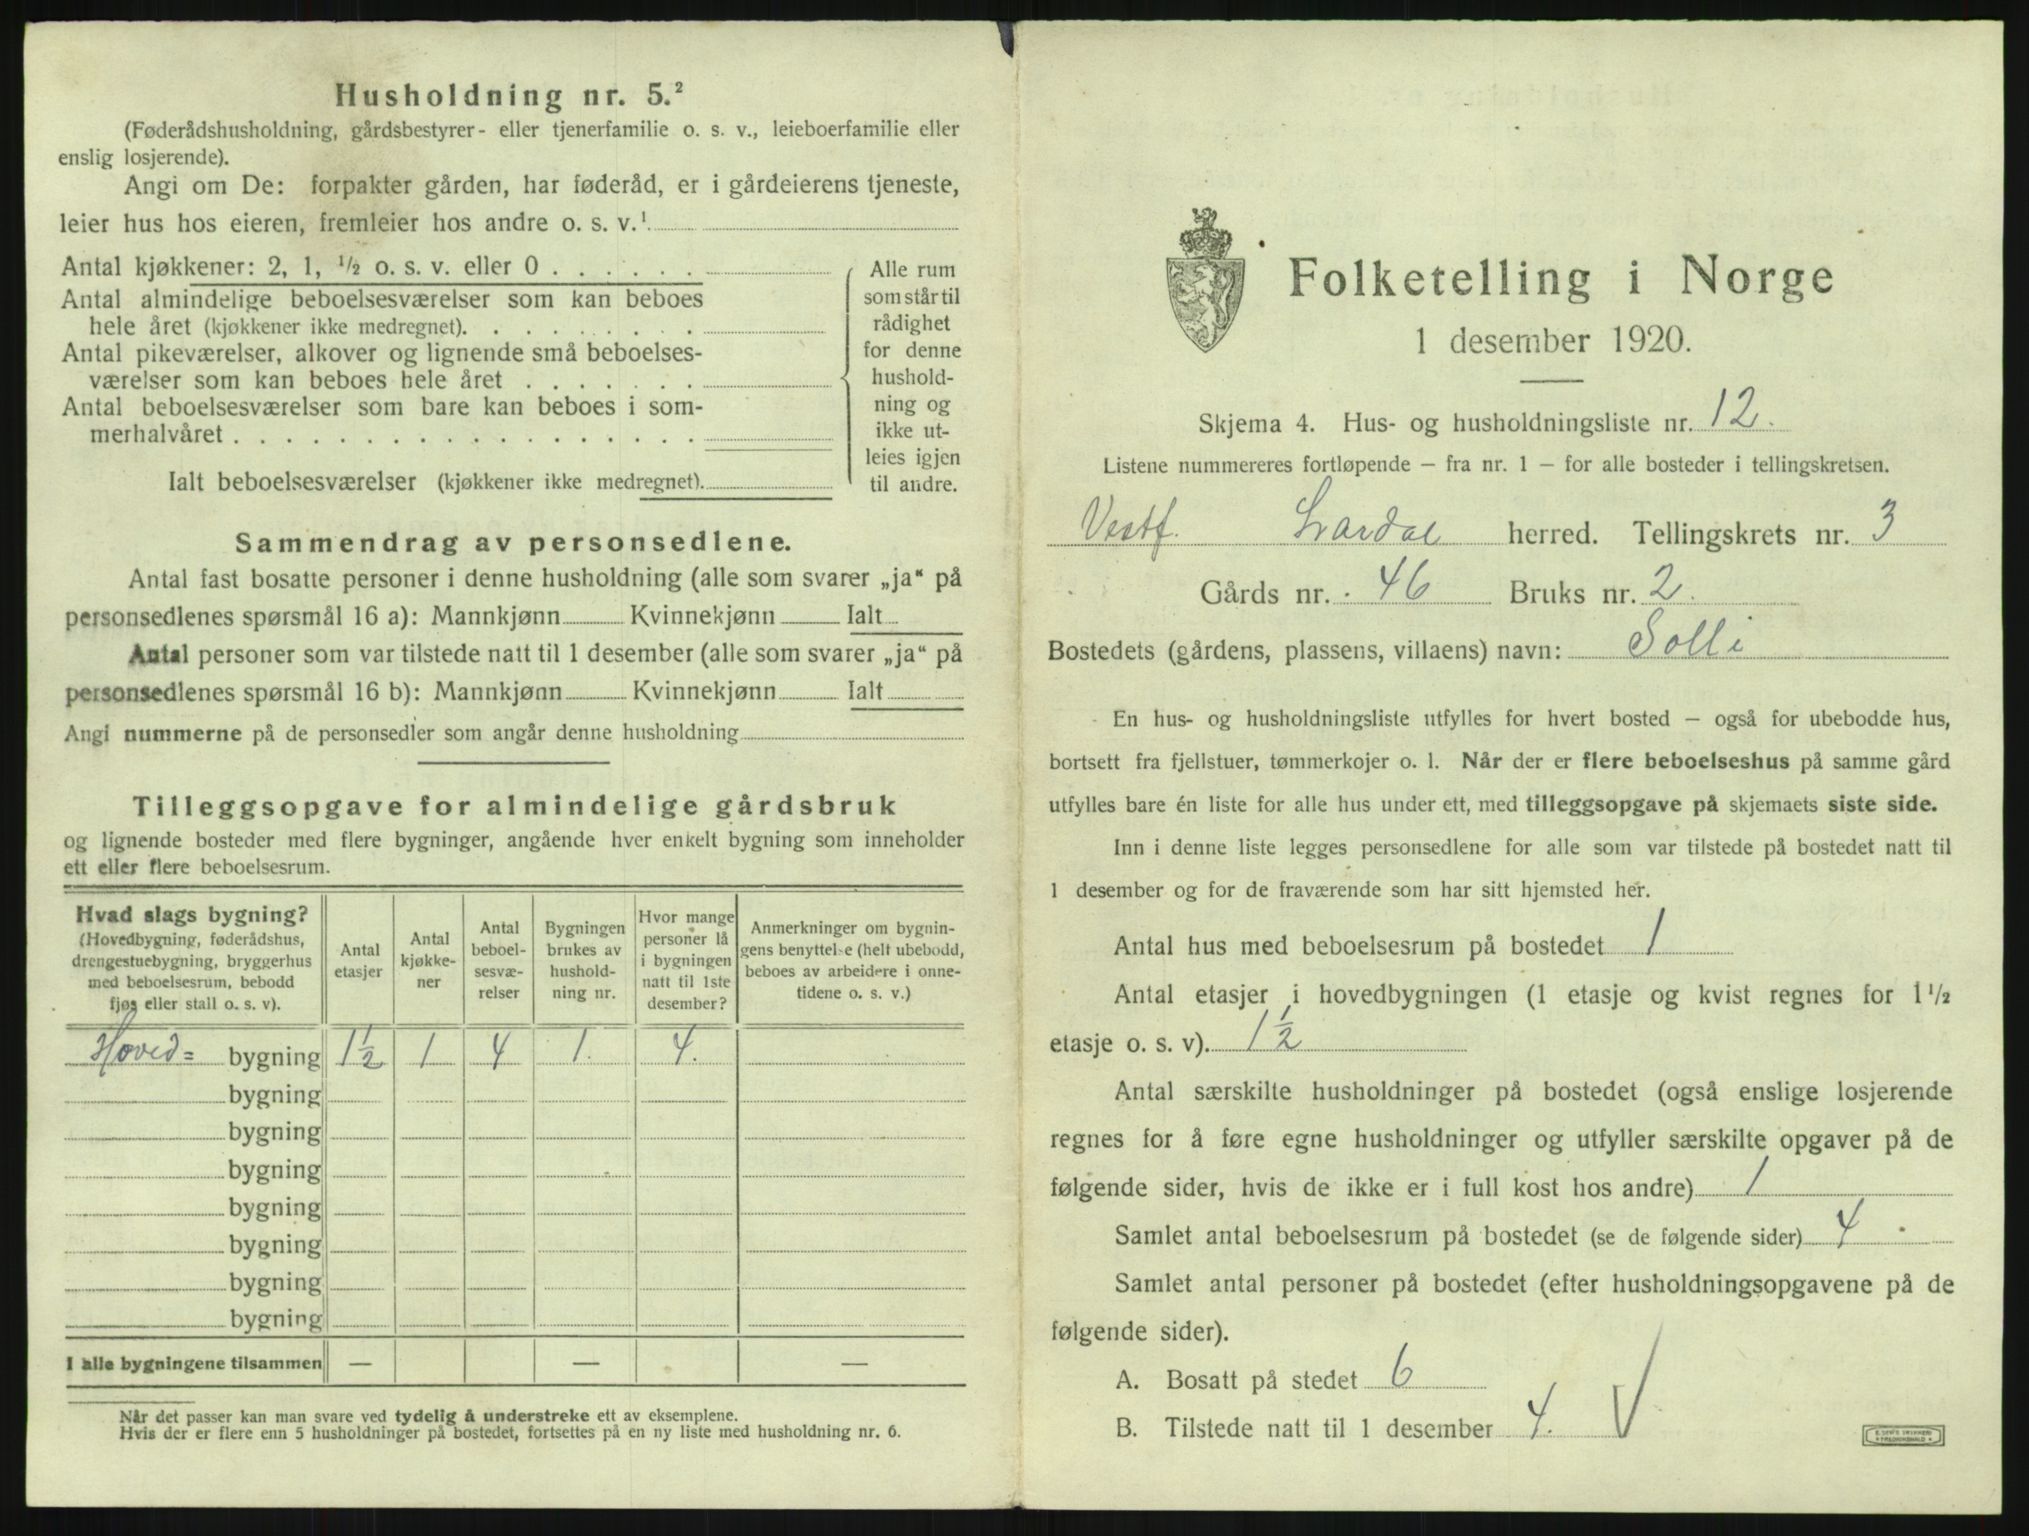 Husholdning nr. 5.²
(Føderådshusholdning, gårdsbestyrer- eller tjenerfamilie o. s. v., leieboerfamilie eller
enslig losjerende).
Angi om De: forpakter gården, har føderåd, er i gårdeierens tjeneste,
leier hus hos eieren, fremleier hos andre o. s. v.¹
Antal kjøkkener: 2, 1, ½ o. s. v. eller 0 . . . . . .
Antal almindelige beboelsesværelser som kan beboes
hele året (kjøkkener ikke medregnet). . . . . . . . .
Antal pikeværelser, alkover og lignende små beboelses-
værelser som kan beboes hele året . . . . . . .
Antal beboelsesværelser som bare kan beboes i som-
merhalvåret . . . . . . . . . . . . . . . . . .
Ialt beboelsesværelser (kjøkkener ikke medregnet).
Alle rum
som står til
rådighet
for denne
hushold-
ning og
ikke ut-
leies igjen
til andre.
Sammendrag av personsedlene.
Antal fast bosatte personer i denne husholdning (alle som svarer „ja“ på
personsedlenes spørsmål 16 a): Mannkjønn Kvinnekjønn Ialt
Antal personer som var tilstede natt til 1 desember (alle som svarer „ja“ på
personsedlenes spørsmål 16 b): Mannkjønn Kvinnekjønn Ialt
Angi nummerne på de personsedler som angår denne husholdning
Tilleggsopgave for almindelige gårdsbruk
og lignende bosteder med flere bygninger, angående hver enkelt bygning som inneholder
ett eller flere beboelsesrum.
Hvad slags bygning?
(Hovedbygning, føderådshus,
drengestuebygning, bryggerhus
med beboelsesrum, bebodd
fjøs eller stall o. s. v).
Antal
etasjer
Antal
kjøkke-
ner
Antal
beboel-
sesvæ-
relser
Bygningen
brukes av
hushold-
ning nr.
Hvor mange
personer lå
i bygningen
natt til 1ste
desember?
Anmerkninger om bygnin-
gens benyttelse (helt ubebodd,
beboes av arbeidere i onne-
tidene o. s. v.)
Hoved= bygning 1½ 1 4 1. 4.
bygning
bygning
bygning
bygning
bygning
bygning
bygning
I alle bygningene tilsammen — — —
Når det passer kan man svare ved tydelig å understreke ett av eksemplene.
Hvis der er flere enn 5 husholdninger på bostedet, fortsettes på en ny liste med husholdning nr. 6.
Folketelling i Norge
1 desember 1920.
Skjema 4. Hus- og husholdningsliste nr. 12.
Listene nummereres fortløpende – fra nr. 1 – for alle bosteder i tellingskretsen.
Vestf. Lardal herred. Tellingskrets nr. 3
Gårds nr. 46 Bruks nr. 2.
Bostedets (gårdens, plassens, villaens) navn: Solli
En hus- og husholdningsliste utfylles for hvert bosted – også for ubebodde hus,
bortsett fra fjellstuer, tømmerkojer o. l. Når der er flere beboelseshus på samme gård
utfylles bare én liste for alle hus under ett, med tilleggsopgave på skjemaets siste side.
Inn i denne liste legges personsedlene for alle som var tilstede på bostedet natt til
1 desember og for de fraværende som har sitt hjemsted her.
Antal hus med beboelsesrum på bostedet 1
Antal etasjer i hovedbygningen (1 etasje og kvist regnes for 1½
etasje o. s. v). 1½
Antal særskilte husholdninger på bostedet (også enslige losjerende
regnes for å føre egne husholdninger og utfyller særskilte opgaver på de
følgende sider, hvis de ikke er i full kost hos andre) 1
Samlet antal beboelsesrum på bostedet (se de følgende sider) 4
Samlet antal personer på bostedet (efter husholdningsopgavene på de
følgende sider).
A. Bosatt på stedet 6
B. Tilstede natt til 1 desember 4.